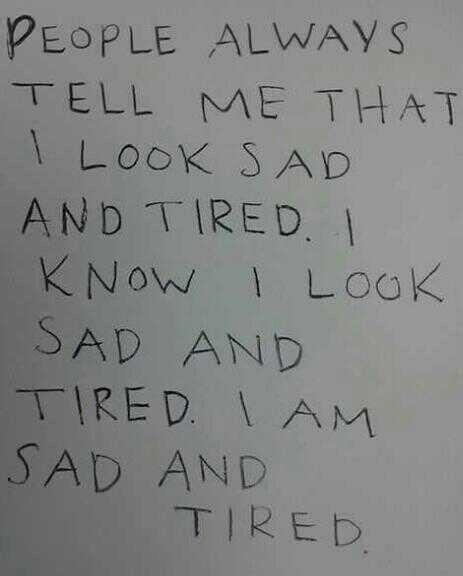 PEOPLE ALWAYS
TELL ME THAT
I LOOK SAD
AND TIRED. I
KNOW I LOOK
SAD AND
TIRED. I AM
SAD AND
TIRED.